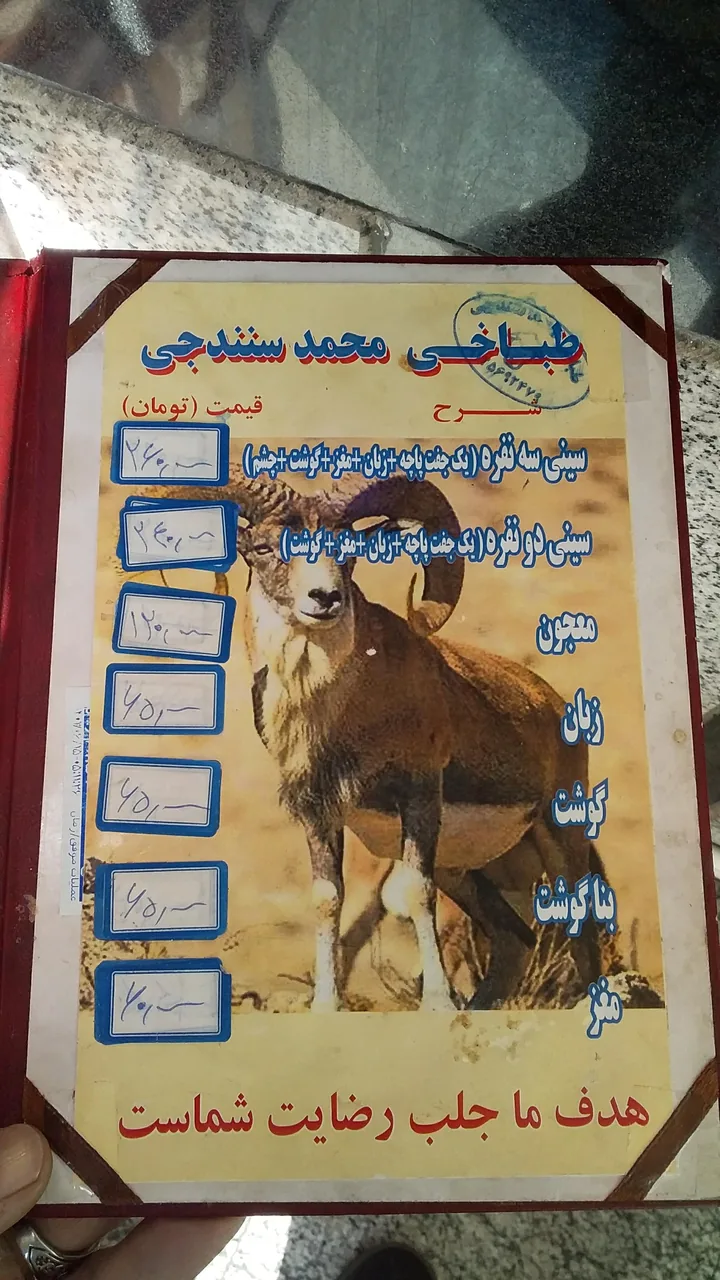 طباخی محمد سنندجی
شرح قیمت (تومان)
سینی سه نفره (یک جفت پاچه+زبان+مغز+گوشت+چشم)
سینی دو نفره (یک جفت پاچه+زبان+مغز+گوشت) ۲۴۰,۰۰۰
معجون ۱۲۰,۰۰۰
زبان ۶۵,۰۰۰
گوشت ۶۵,۰۰۰
بناگوشت ۶۵,۰۰۰
مغز ۶۰,۰۰۰
هدف ما جلب رضایت شماست